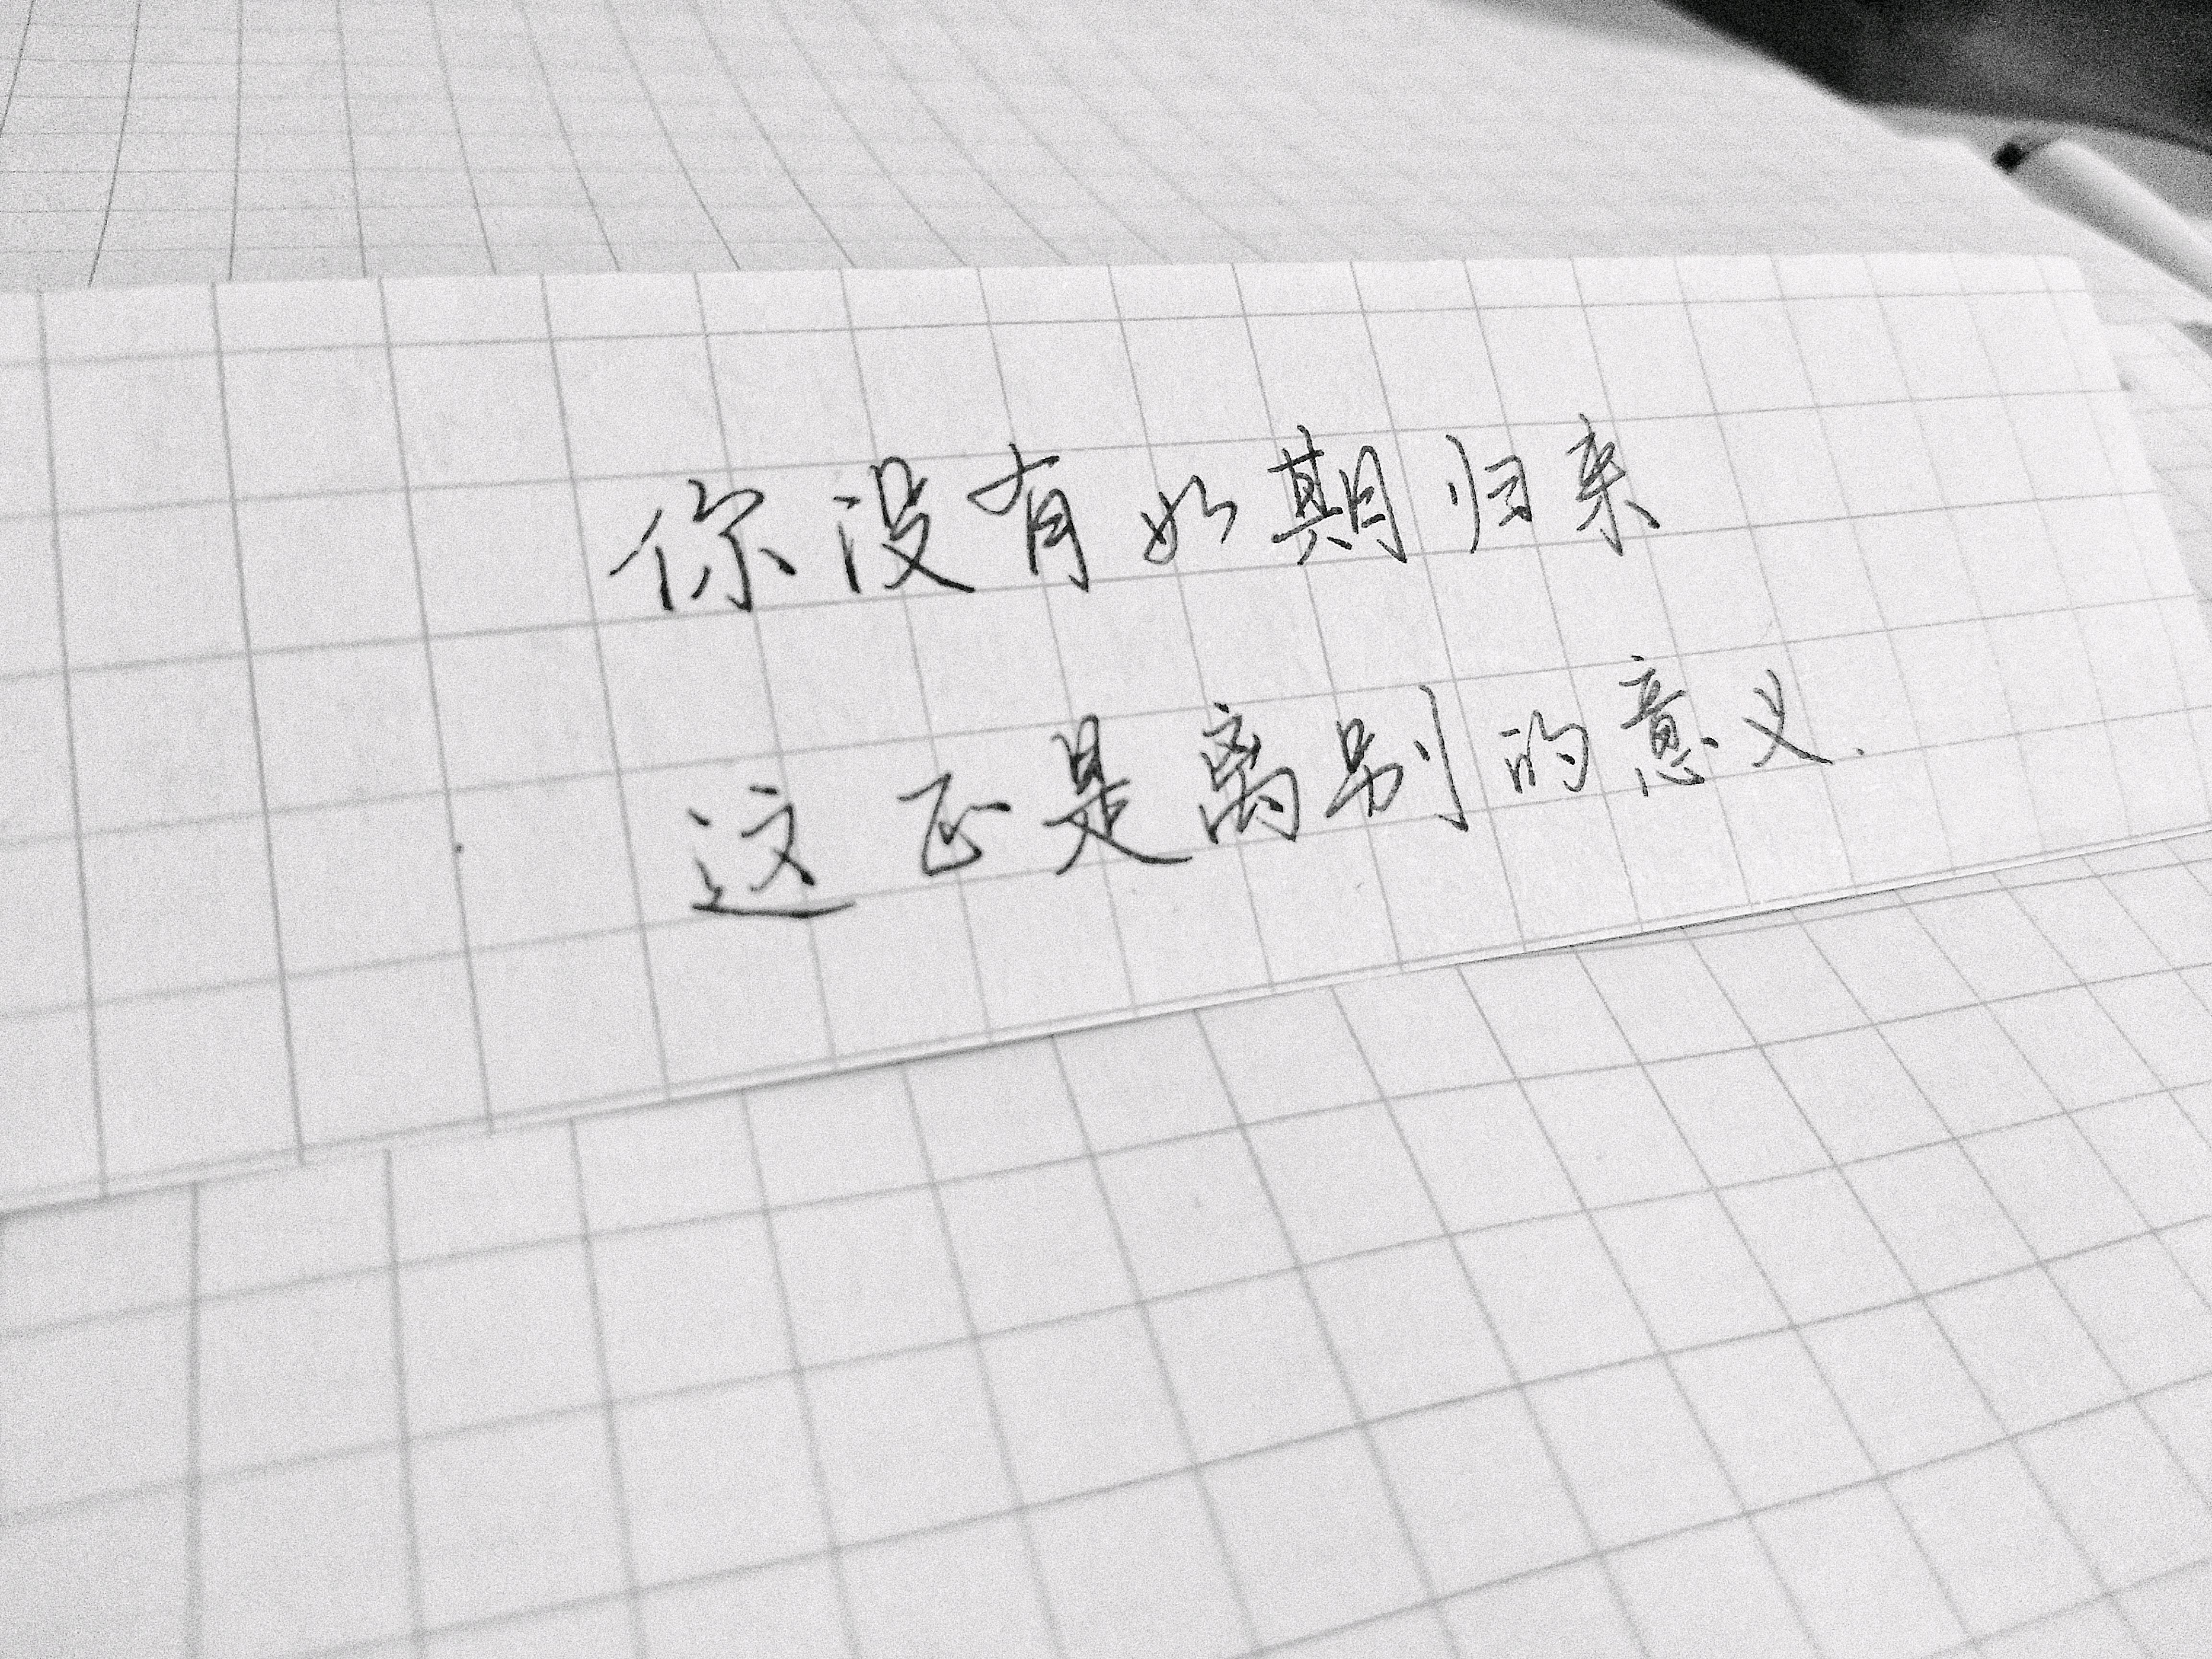 你没有如期归来
这正是离别的意义.